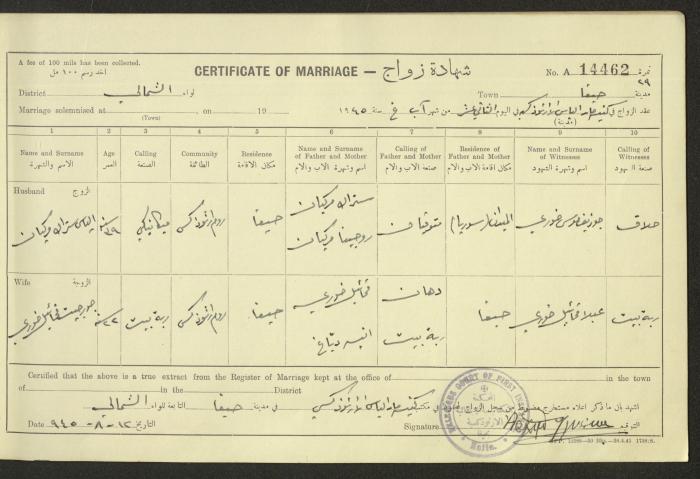 A fee of 100 mils has been collected.
اخذ رسم ١٠٠ مل
CERTIFICATE OF MARRIAGE — شهادة زواج
No. A 14462 نمرة
٢٩
District لواء الشمالي
Town حيفا مدينة
Marriage solemnised at , on 19
(Town)
عقد الزواج في كنيسة مار الياس الارثوذكس في اليوم الثاني عشر من شهر آب سنة ١٩٤٥
(مدينة)
1 2 3 4 5 6 7 8 9 10
Name and Surname Age Calling Community Residence Name and Surname of Father and Mother Calling of Father and Mother Residence of Father and Mother Name and Surname of Witnesses Calling of Witnesses
الاسم والشهرة العمر الصنعة الطائفة مكان الاقامة اسم وشهرة الاب والام صنعة الاب والام مكان اقامة الاب والام اسم وشهرة الشهود صنعة الشهود
Husband الزوج
الياس ستراك وكيان ٢٩ سنة ميكانيكي روم ارثوذكسي حيفا ستراك وكيان متوفيان جوزيف خوري حلاق
روجينا وكيان
Wife الزوجة
جورجيت مخائيل خوري ٢٢ سنة ربة بيت روم ارثوذكسي حيفا مخائيل خوري دهان حيفا عبدا مخائيل خوري ربة بيت
انيسه دباغ ربة بيت
Certified that the above is a true extract from the Register of Marriage kept at the office of in the town
of in the District
اشهد بان ما ذكر اعلاه مستخرج من سجل الزواج في كنيسة مار الياس الارثوذكسي في مدينة حيفا التابعة للواء الشمالي
Date ١٢-٨-٩٤٥ التاريخ
Signature التوقيع
COURT OF FIRST
Haifa.